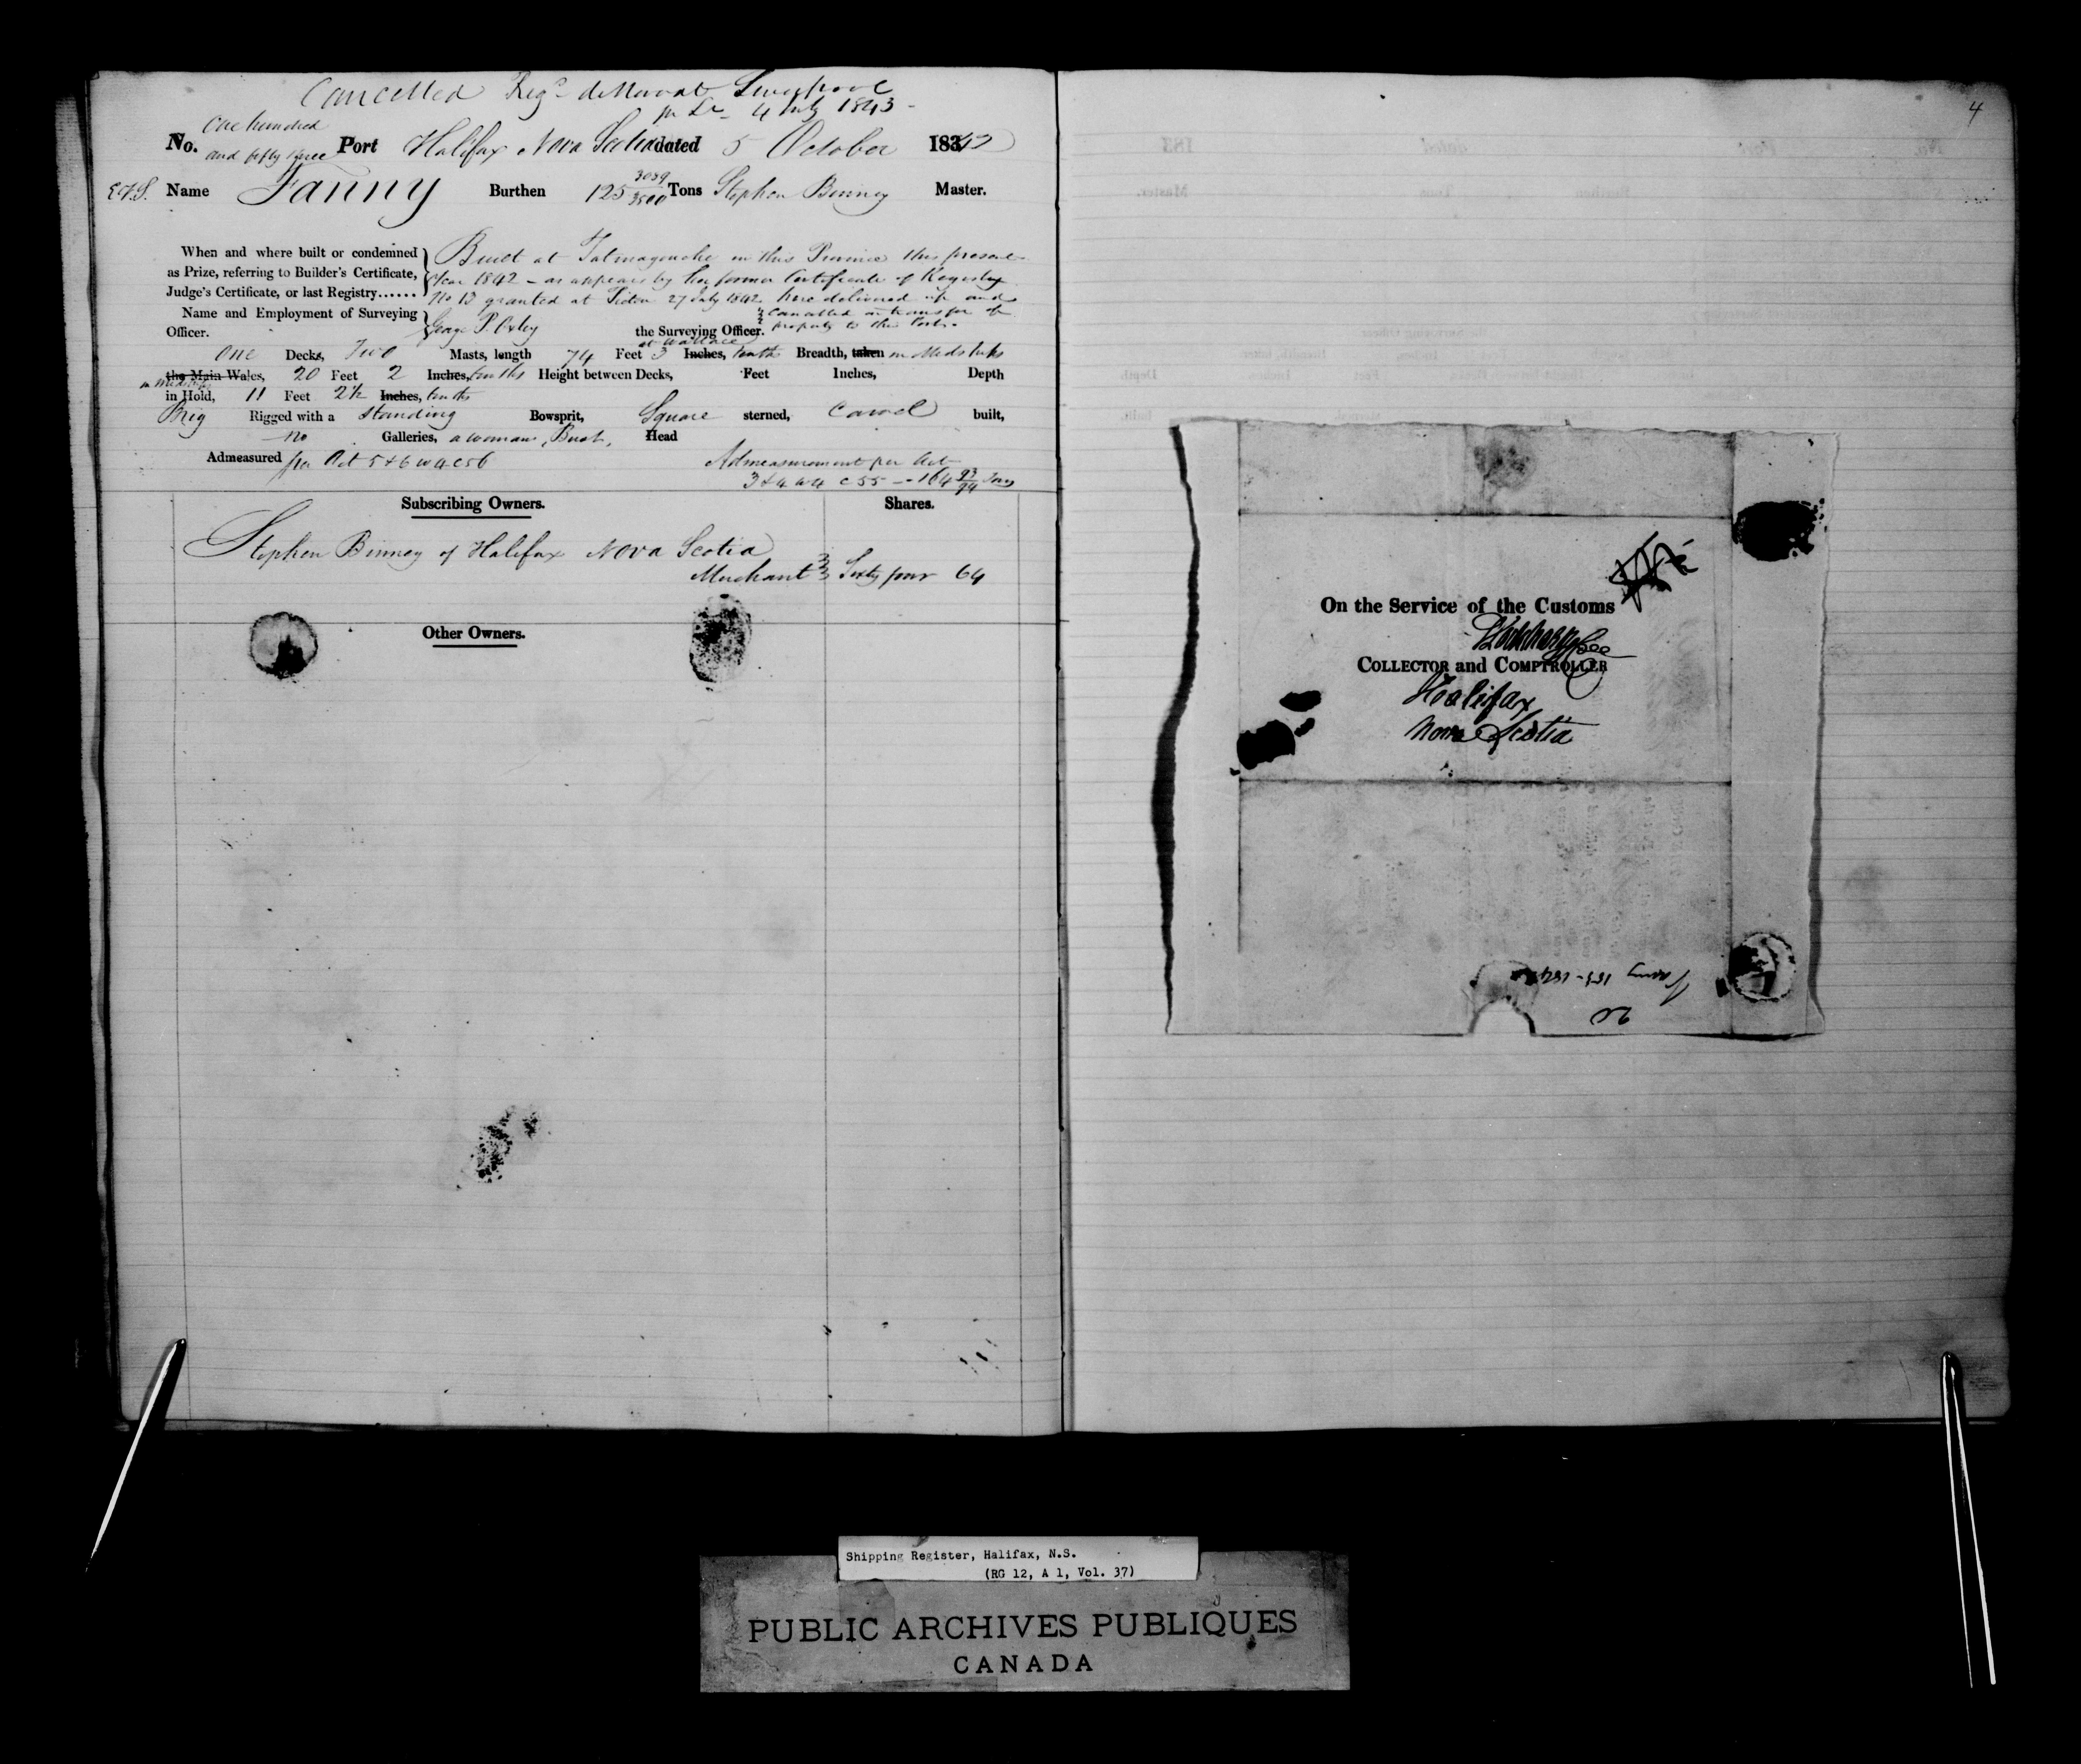 Cancelled Regd de Novo at Liverpool
pr Lr 4 July 1843 -
No. One hundred and fifty three Port Halifax Nova Scotia dated 5 October 1842
E.F.S. Name Fanny Burthen 125 3089/3500 Tons Stephen Binney Master.
When and where built or condemned as Prize, referring to Builder's Certificate, Judge's Certificate, or last Registry......
Built at Tatmagouche in this Province this present
Year 1842 - as appears by her former Certificate of Registry
No 13 granted at Pictou 27 July 1842 here delivered up and
cancelled on transfer of
property to this Port.
Name and Employment of Surveying Officer. George P. Oxley the Surveying Officer.
at Wallace
One Decks, Two Masts, length 74 Feet 3 Inches, tenths Breadth, taken in Midships
the Main Wales, 20 Feet 2 Inches, tenths Height between Decks, Feet Inches, Depth
in Midships
in Hold, 11 Feet 2½ Inches, tenths
Brig Rigged with a standing Bowsprit, Square sterned, Carvel built,
no Galleries, a woman Bust, Head
Admeasured per Act 5 & 6 W 4 C 56
Admeasurement per Act
3 & 4 W 4 C 55 -- 164 93/94 Tons
Subscribing Owners. Shares.
Stephen Binney of Halifax Nova Scotia
Merchant Sixty four 64
Other Owners.
4
On the Service of the Customs
COLLECTOR and COMPTROLLER
Halifax
Nova Scotia
Fanny 153-1842
Shipping Register, Halifax, N.S.
(RG 12, A 1, Vol. 37)
PUBLIC ARCHIVES PUBLIQUES
CANADA